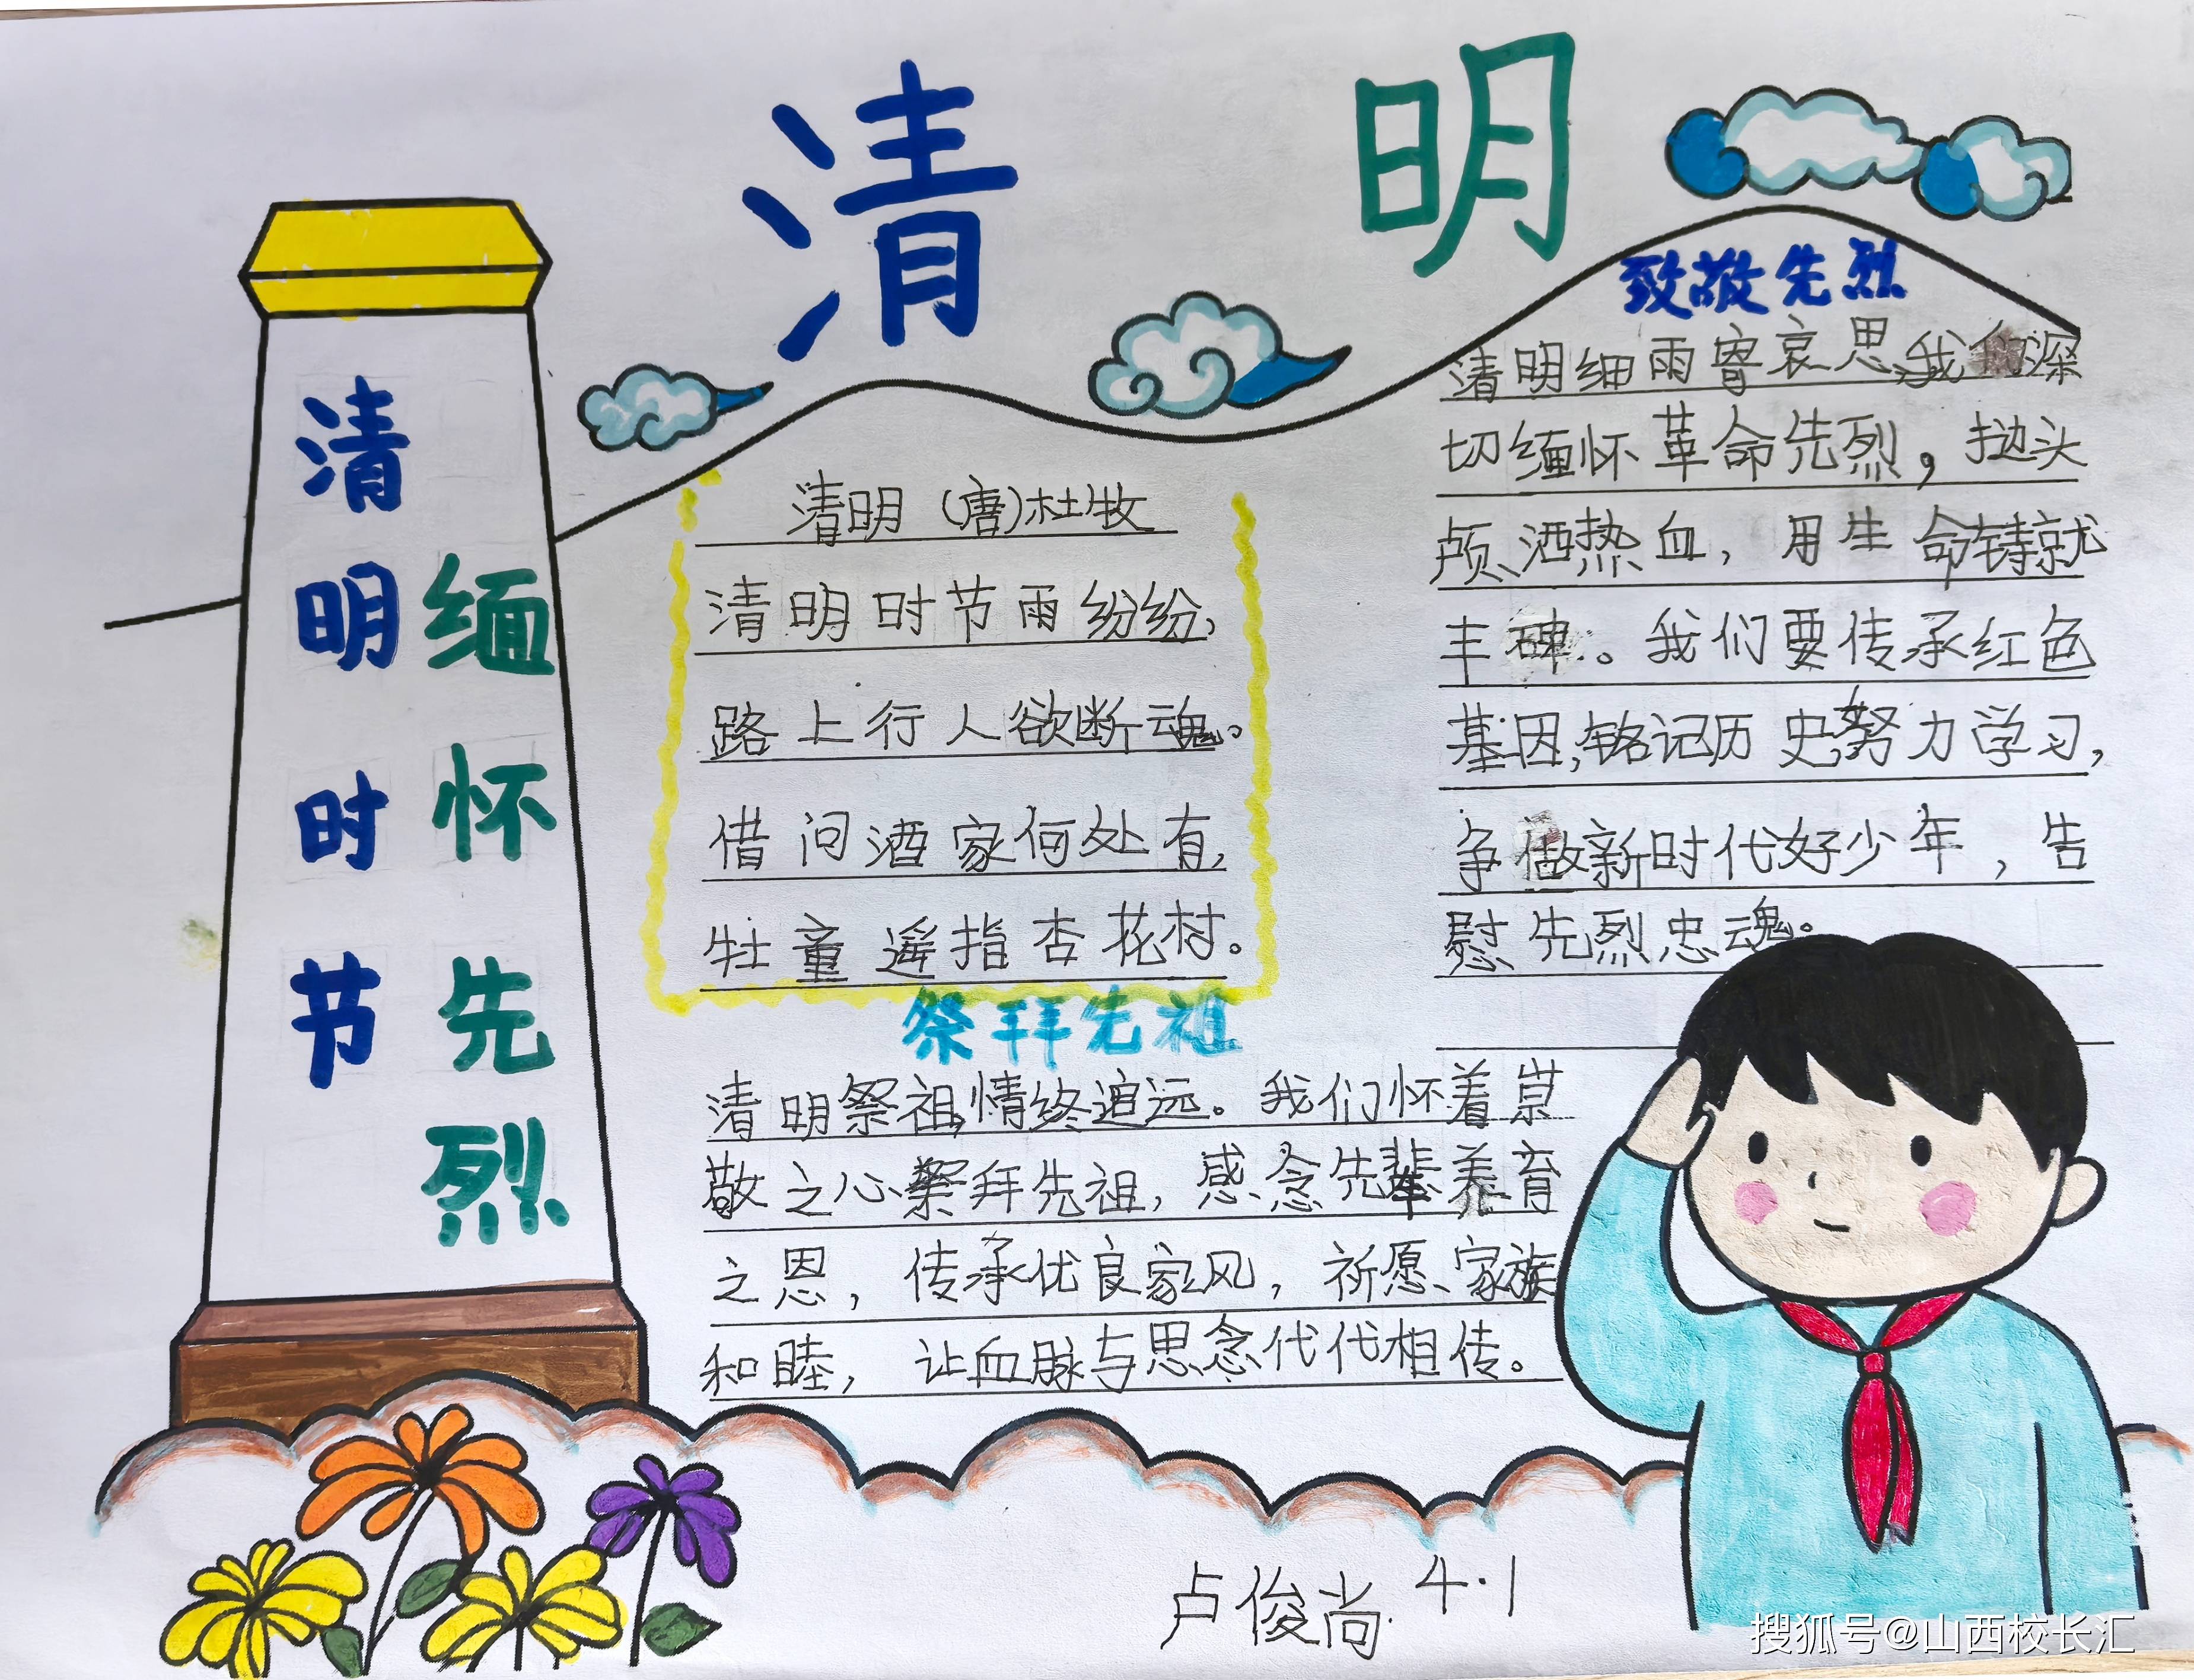 清 明
清明时节
缅怀先烈
清明 (唐)杜牧
清明时节雨纷纷,
路上行人欲断魂。
借问酒家何处有,
牡童遥指杏花村。
祭拜先祖
清明祭祖,情终追远。我们怀着崇
敬之心祭拜先祖,感念先辈养育
之恩,传承优良家风,祈愿家族
和睦,让血脉与思念代代相传。
致敬先烈
清明细雨寄哀思,我们深
切缅怀革命先烈。抛头
颅、洒热血,用生命铸就
丰碑。我们要传承红色
基因,铭记历史,努力学习,
争做新时代好少年,告
慰先烈忠魂。
卢俊尚 4.1
搜狐号@山西校长汇